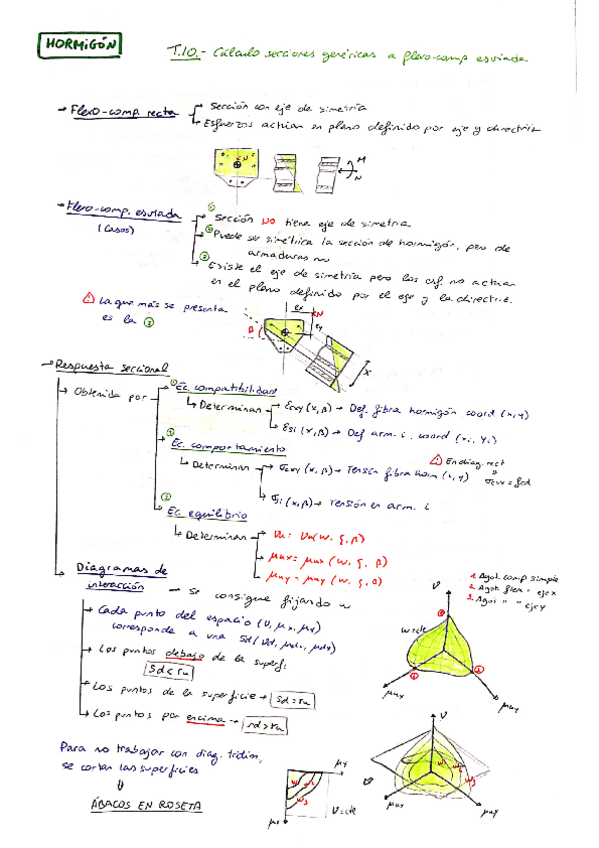 HORMIGÓN
T.10.- Cálculo secciones genéricas a flexo-comp esviada
→ Flexo-comp. recta
→ Sección con eje de simetría
→ Esfuerzos actúan en plano definido por eje y directriz
N
M
N
→ Flexo-comp. esviada
(Casos)
① Sección NO tiene eje de simetría
② Puede ser simétrica la sección de hormigón, pero de armaduras no
③ Existe el eje de simetría pero los esf. no actúan
en el plano definido por el eje y la directriz.
⚠ La que más se presenta
es la ③
ex
N
ey
β
x
→ Respuesta seccional
→ Obtenida por
① Ec. compatibilidad
↳ Determinan
εcxy (x,β) → Def. fibra hormigón coord (x,y)
εsi (x,β) → Def arm. i, coord (xi, yi)
② Ec. comportamiento
↳ Determinan
σcxy (x,β) → Tensión fibra horm (x,y)
⚠ En diag. rect
σcxy = fcd
σsi (x,β) → Tensión en arm. i
③ Ec. equilibrio
→ Determinan
νu = νu (w, ξ, β)
μux = μux (w, ξ, β)
μuy = μuy (w, ξ, β)
→ Diagramas de
interacción
→ Se consigue fijando w
→ Cada punto del espacio (ν, μx, μy)
corresponde a una Sd (νd, μdx, μdy)
→ Los puntos debajo de la superf:
Sd < ru
→ Los puntos de la superficie → Sd = ru
→ Los puntos por encima → Sd > ru
1. Agot. comp simple
2. Agot. flex. " eje x
3. Agot " " eje y
ν
w=cte
μux
μuy
Para no trabajar con diag. tridim,
se cortan las superficies
⇓
ÁBACOS EN ROSETA
μy
w1
w2
w3
μx
ν=cte
ν
w1
w2
w3
μux
μuy